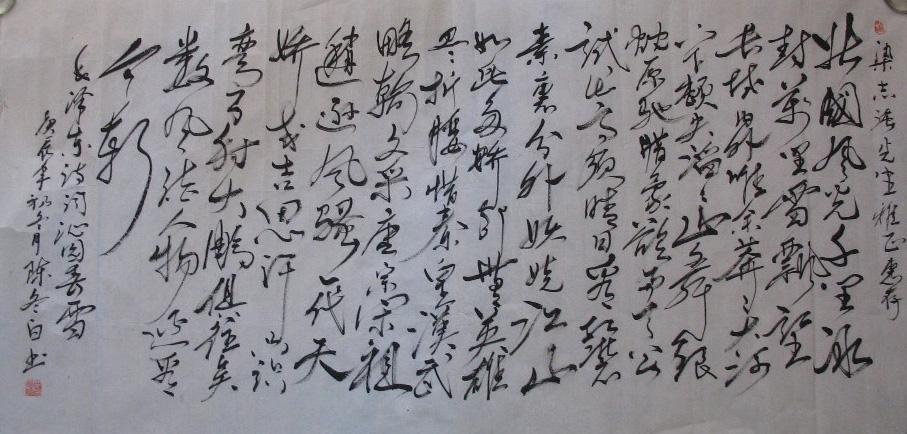 梁志先生雅正惠存
北國風光千里冰
封萬里雪飄望
長城內外惟余莽々大河
上下頓失滔々山舞銀
蛇原馳蜡象欲與天公
試比高須晴日看紅裝
素裹分外妖嬈江山
如此多娇引無英雄
竞折腰惜秦皇漢武
略輸文采唐宗宋祖
稍遜風騷一代天
娇成吉思汗只識
彎弓射大鵰俱往矣
數風流人物還看
今朝
毛泽东诗词沁园春雪
庚辰年初冬月陈冬白书